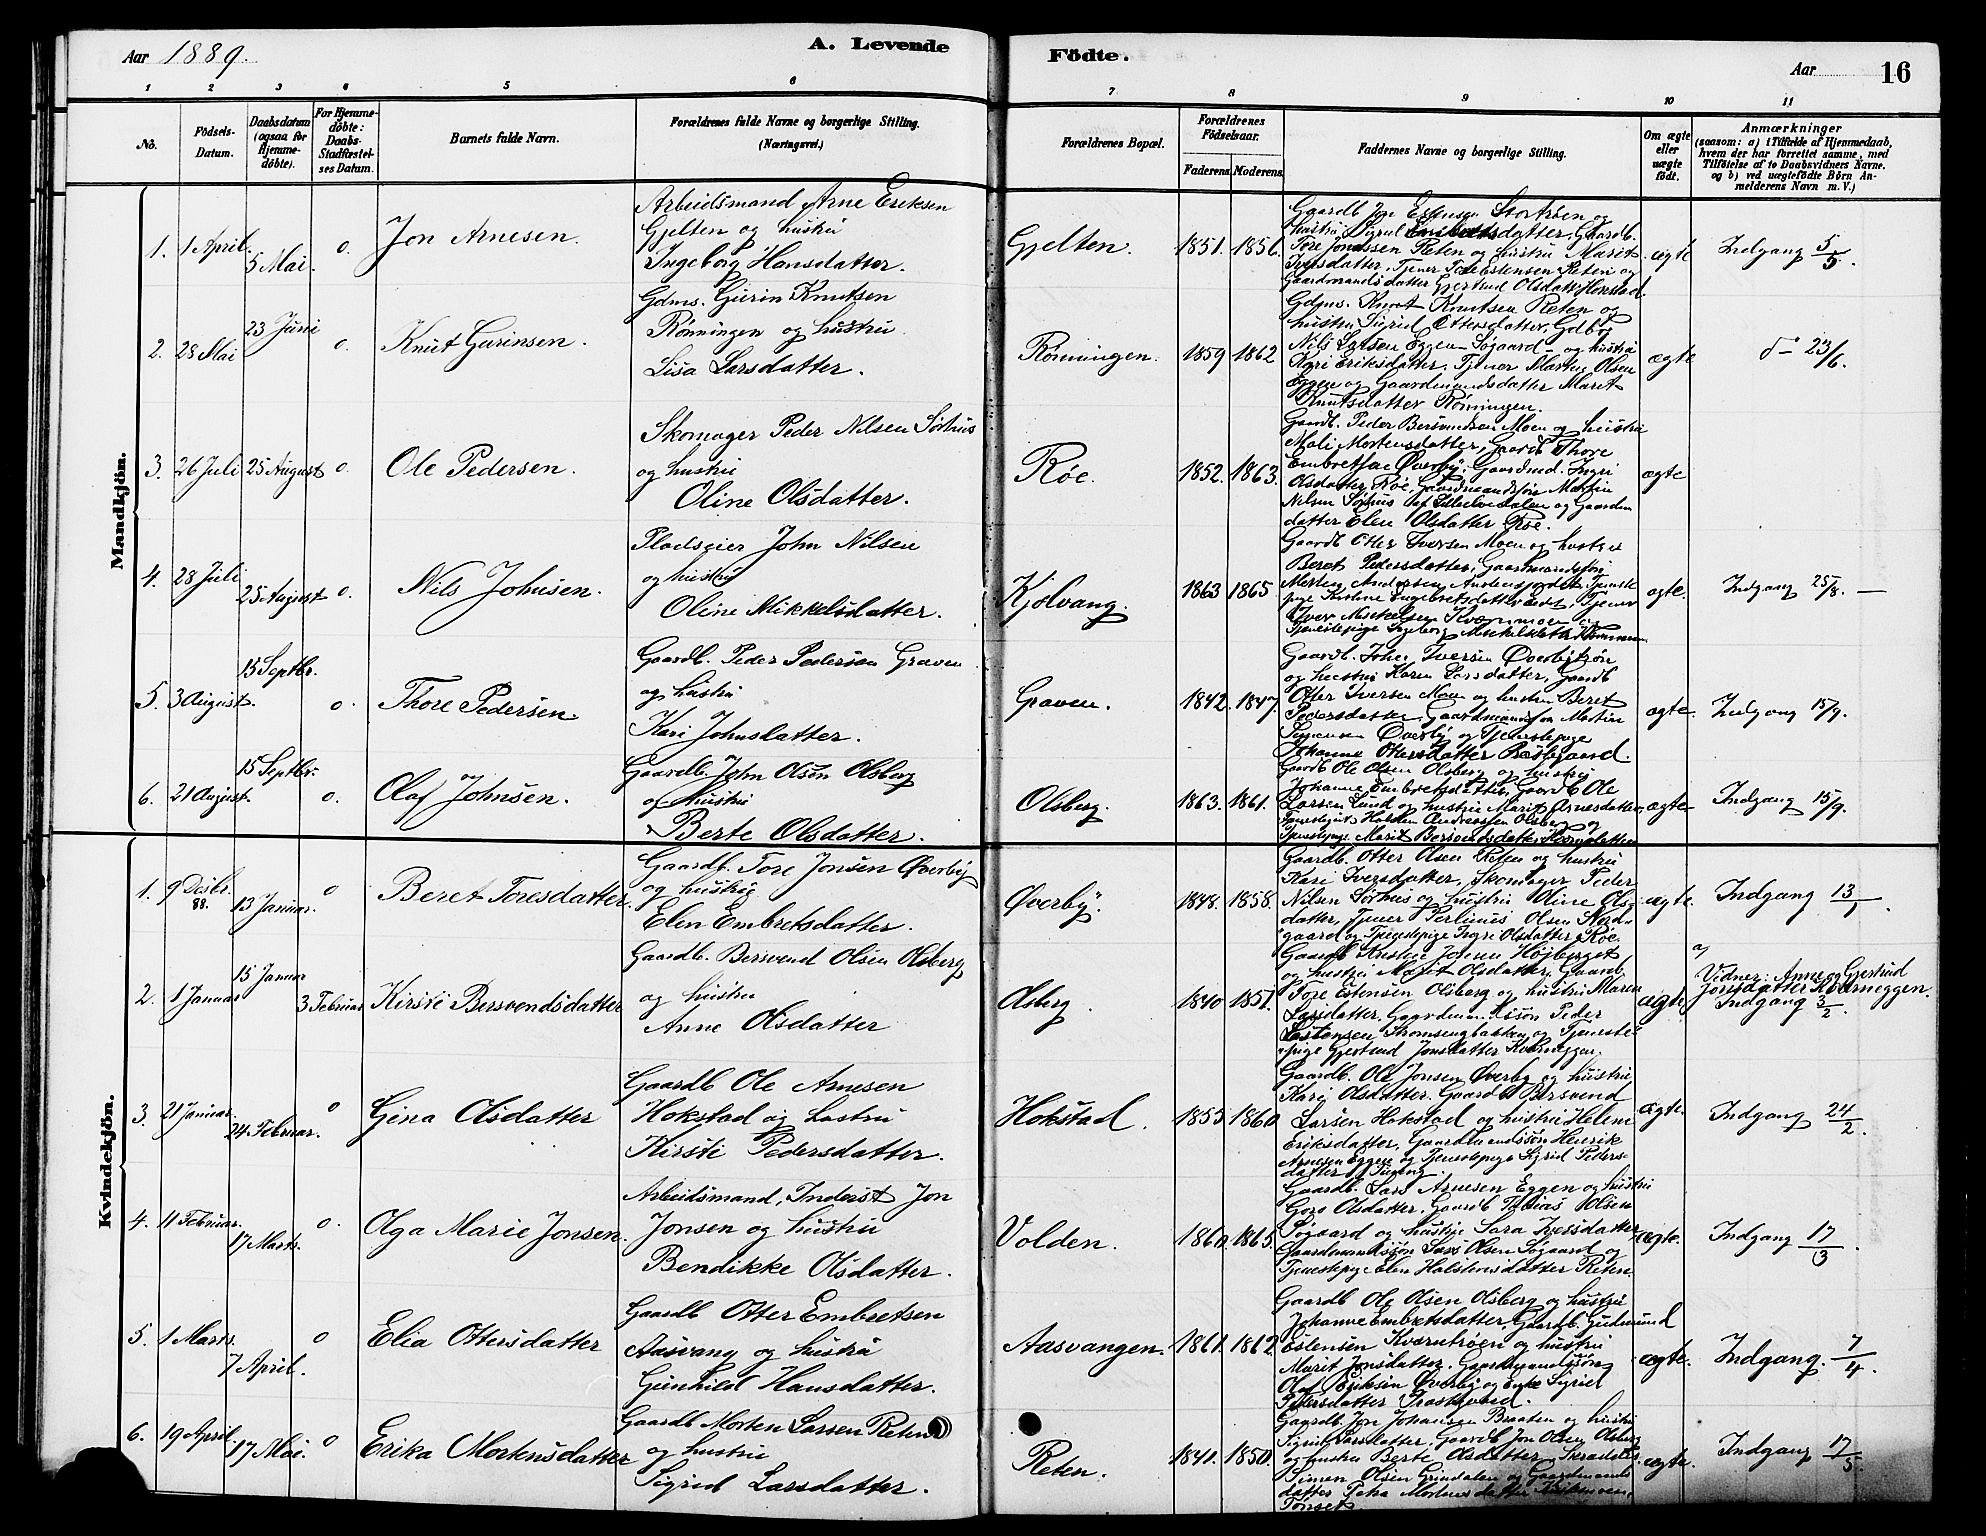 Aar 1889.
A. Levende
Födte.
Aar
16
1 2 3 4 5 6 7 8 9 10 11
No.
Födsels-
Datum.
Daabsdatum
(ogsaa for
Hjemme-
döbte).
For Hjemme-
döbte:
Daabs-
Stadfæstel-
ses Datum.
Barnets fulde Navn.
Forældrenes fulde Navne og borgerlige Stilling.
(Næringsvei.)
Forældrenes Bopæl.
Forældrenes
Födselsaar.
Faderens Moderens
Faddernes Navne og borgerlige Stilling.
Om ægte
eller
uægte
födt.
Anmærkninger
(saasom: a) i Tilfælde af Hjemmedaab,
hvem der har forrettet samme, med
Tilföielse af to Daabsvidners Navne.
og b) ved uægtefödte Börn An-
melderens Navn m. V.)
Mandkjön.
1. 1 April. 5 Mai. o. Jon Arnesen.
Arbeidsmand Arne Eriksen
Gjelten og hustru
Ingeborg Hansdatter.
Gjelten. 1851. 1856.
Gaardb Jon Estensen Stortrøen og
hustru Sigrid Embretsdatter, Gaardb.
Tore Jonassen Reten og hustru Marit
Iversdatter, Tjener Tore Estensen Reten og
Gaardmandsdatter Gjertrud Olsdatter Honstad.
ægte Indgang 5/5.
2. 28 Mai 23 Juni o. Knut Gurinsen.
Gdms. Gurin Knutsen
Rønningen og hustru
Lisa Larsdatter.
Rønningen. 1859 1862
Gdms. Knut Knutsen Reten og
hustru Sigrid Ottersdatter, Gdbrg
Nils Larsen Eggen Søgaard og hustru
Kari Eriksdatter, Tjener Morten Olsen
Eggen og Gaardmandsdatter Marit
Knutsdatter Rønningen.
ægte d- 23/6.
3. 26 Juli 25 August o. Ole Pedersen.
Skomager Peder Nilsen Sørhus
og hustru
Oline Olsdatter.
Røe. 1852. 1863.
Gaardb. Peder Bersvendsen Moen og hustru
Mali Mortensdatter, Gaardb Thore
Embretsen Øverby, Gaardmd. Ingri
Olsdatter Røe, Gaardmandssøn Martin
Nilsen Sørhus af Lilleelvedalen og Gaardm
datter Elen Olsdatter Røe.
ægte
4. 28 Juli 25 August o. Nils Johnsen.
Pladseier John Nilsen
og hustru
Oline Mikkelsdatter.
Kjølvang. 1863 1865
Gaardb Otter Iversen Moen og hustru
Beret Pedersdatter, Gaardmandssøn
Morten Andersen
pige Kristine Engebretsdatter
Iver Mikkelsen Kvæmmoen og
Tjenestepige Ingeborg Mikkelsdatter
ægte. Indgang 25/8. —
5. 3 August. 15 Septbr. o. Thore Pedersen
Gaardb. Peder Pedersen Graven
og hustru
Kari Johnsdatter.
Graven. 1842. 1847.
Gaardb. John Iversen Øverbytrøn
og hustru Karen Larsdatter, Gaardb
Otter Iversen Moen og hustru Beret
Pedersdatter, Gaardmandssøn Martin
Øverby og Tjenestepige
Johanne Ottersdatter
ægte. Indgang 15/9.
6. 21 August. 15 Septbr. o. Olaf Johnsen.
Gaardb. John Olsen Olsberg
og hustru
Berte Olsdatter.
Olsberg. 1863. 1861.
Gaardb Ole Olsen Olsberg og hustru
Johanne Embretsdatter, Gaardb Ole
Larsen Lund og hustru Marit Arnesdatter,
Halsten Andreassen Olsberg og
Tjenestepige Marit Bersvendsdatter
ægte Indgang 15/9.
Kvindekjön.
1. 9 Desbr. 88. 13 Januar. o Beret Toresdatter.
Gaardb. Tore Jonsen Øverby
og hustru
Elen Embretsdatter.
Øverby. 1848. 1858.
Gaardb. Otter Olsen Reten og hustru
Kari Iversdatter, Skomager Peder
Nilsen Sørhus og hustru Oline Ols-
datter, Tjener Perlinus Olsen Nord-
gaard og Tjenestepige Ingri Olsdatter Røe.
ægte. Indgang 13/1.
2. 1 Januar 15 Januar 3 Februar Kirsti Bersvendsdatter
Gaardb. Bersvend Olsen Olsberg
og hustru
Anne Olsdatter
Olsberg. 1840 1851.
Gaardb Kristen Jonsen Højberget
og hustru Marit Olsdatter, Gaardb
Tore Estensen Olsberg og hustru Maren
Larsdatter, Gaardmandssøn Peder
Estensen Strømsengbakken og Tjeneste-
pige Gjertrud Jonsdatter Kværneggen.
ægte.
a)
Vidner: Anne og Gjertrud
Jonsdatter Kværneggen.
Indgang 3/2.
3. 21 Januar. 24 Februar. o Gina Olsdatter
Gaardb Ole Arnesen
Hokstad og hustru
Kirsti Pedersdatter.
Hokstad. 1855 1860
Gaardb. Ole Jonsen Øverby og hustru
Kari Olsdatter, Gaardb Bersvend
Larsen Hokstad og hustru Helene
Eriksdatter, Gaardmandssøn Henrik
Arnesen Eggen og Tjenestepige Sigrid Peders-
datter
ægte. Indgang 24/2.
4. 11 Februar. 17 Marts. o. Olga Marie Jonsen.
Arbeidsmand, Inderst Jon
Jonsen og hustru
Bendikke Olsdatter.
Volden. 1860. 1865.
Gaardb. Lars Arnesen Eggen og hustru
Goro Olsdatter, Gaardb Tobias Olsen
Søgaard og hustru Sara Iversdatter,
Gaardmandssøn Lars Olsen Søgaard og
Tjenestepige Elen Halstensdatter Reten.
ægte. Indgang 17/3.
5. 1 Marts. 7 April. o Elia Ottersdatter
Gaardb Otter Embretsen
Aasvang og hustru
Gunhild Hansdatter.
Aasvangen. 1861. 1862
Gaardb Ole Olsen Olsberg og hustru
Johanne Embretsdatter, Gaardb. Gudmund
Estensen Kværntrøen og hustru
Marit Jonsdatter, Gaardmandssøn
Olaf Eriksen Øverby og Enke Sigrid
Pedersdatter
ægte. Indgang. 7/4.
6. 19 April. 17 Mai. o Erika Mortensdatter
Gaardb Morten Larsen Reten
og hustru
Sigrid Larsdatter.
Reten. 1841. 1850.
Gaardb. Jon Johansen Braaten og hustru
Sigrid Larsdatter, Gaardb Jon Olsen Olsberg
og hustru Berte Olsdatter, Skrædder
Simon Olsen Grindalen og Gaardmands
datter Petra Mortensdatter
Tønset.
ægte. Indgang 17/5.